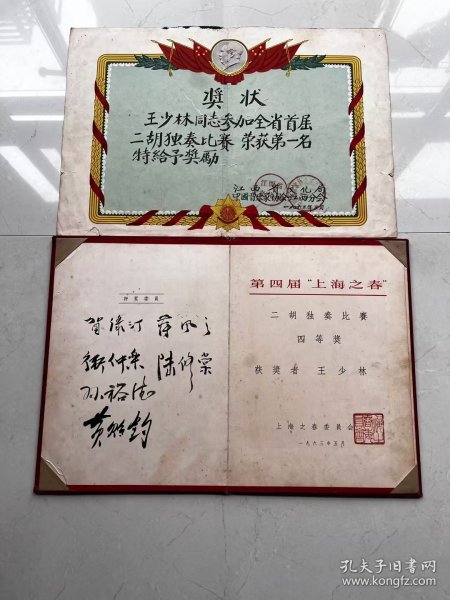 奖状
王少林同志参加全省首届
二胡独奏比赛 荣获第一名
特给予奖励
江西省文化局
中国音乐家协会江西分会
一九六三年
评奖委员
贺绿汀
卫仲乐 陆修棠
孙裕德
黄贻钧
第四届"上海之春"
二胡独奏比赛
四等奖
获奖者 王少林
上海之春委员会
一九六三年五月
孔夫子旧书网
www.kongfz.com